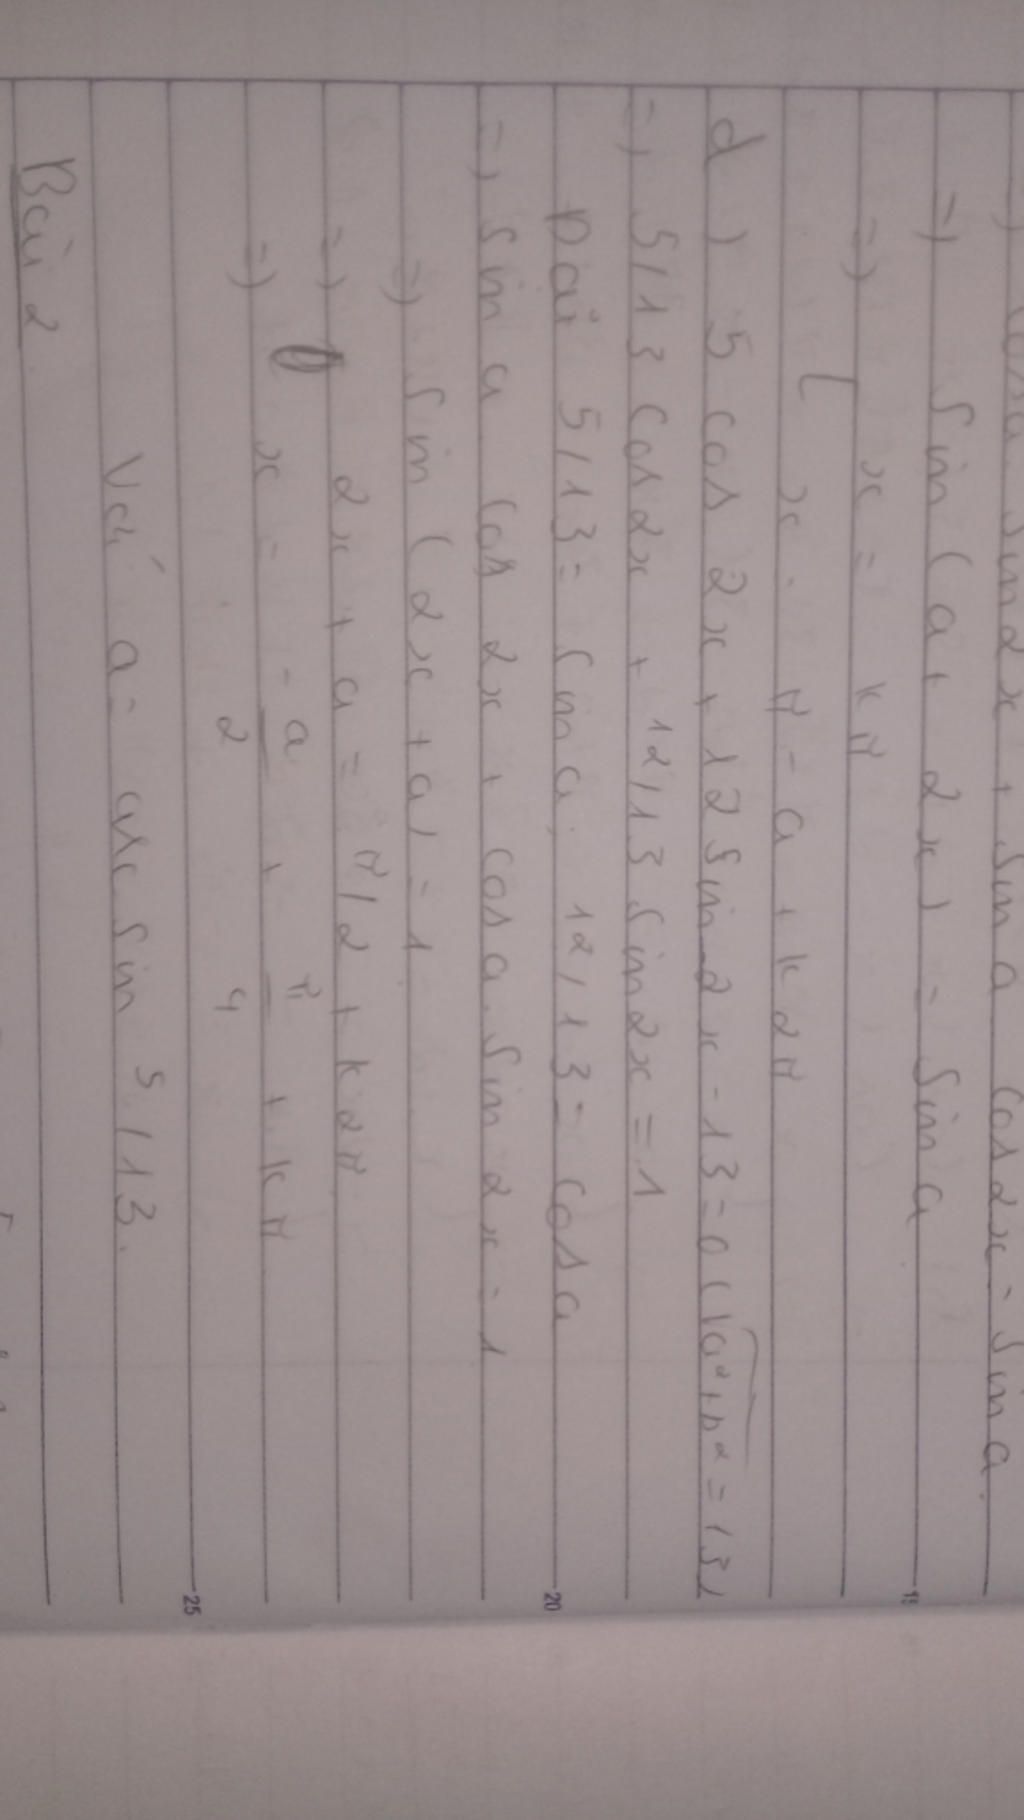 cos a. sin2x + sin a cos2x = sin a.
=) sin (a + 2x) = sin a
=) [ x = kπ
x. π - a + k2π
d) 5 cos 2x + 12 sin 2x - 13 = 0 (√a²+b² = 13)
=) 5/13 cos 2x + 12/13 sin2x = 1
Đặt 5/13 = sin a; 12/13 = cos a
=) sin a cos 2x + cos a. sin 2x = 1
=) sin (2x + a) = 1
=) 2x + a = π/2 + k2π
=) x = -a/2 + π/4 + kπ
Với a = arc sin 5/13.
Bài 2
20
25